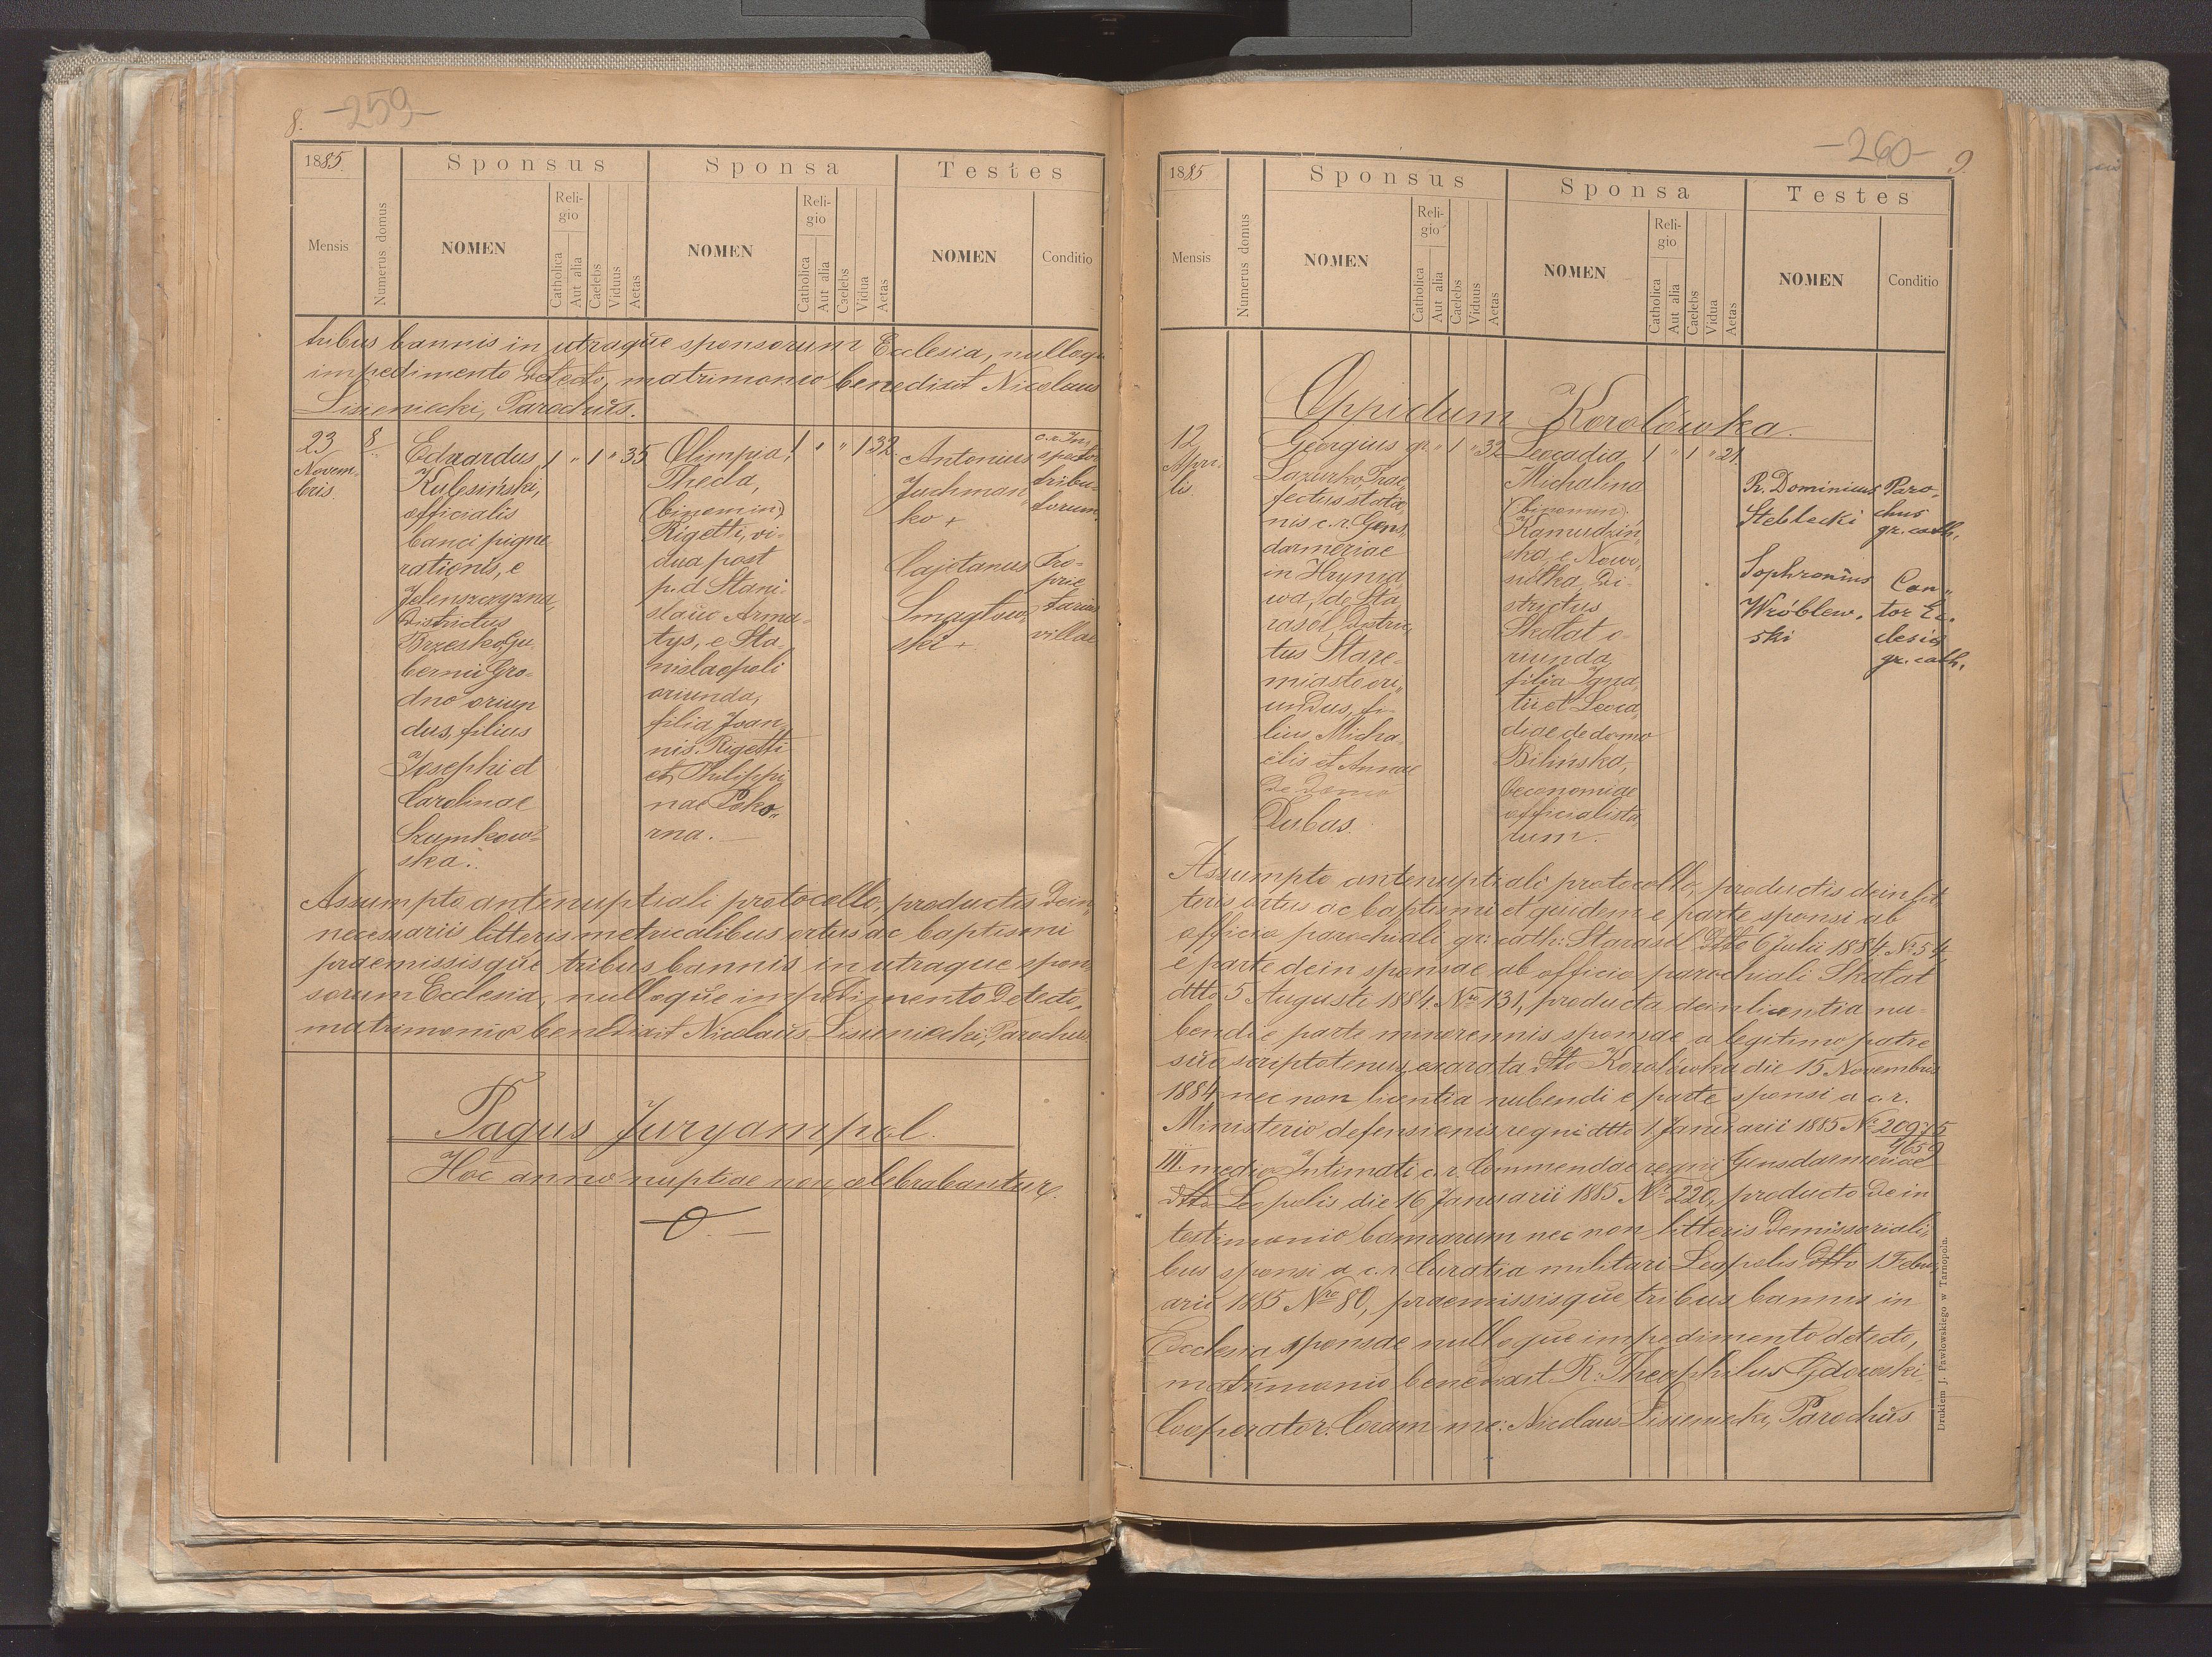 8. -259-
1885.
Sponsus
Sponsa
Testes
Mensis
Numerus domus
NOMEN
Religio
Catholica
Aut alia
Caelebs
Viduus
Aetas
NOMEN
Religio
Catholica
Aut alia
Caelebs
Vidua
Aetas
NOMEN
Conditio
tribus bannis in utraque sponsorum Ecclesia, nulloque
impedimento detecto, matrimonio benedixit Nicolaus
Lisieniecki, Parochus.
23
Novem-
bris
8.
Eduardus 1 " 1 " 35
Kulesiński,
officialis
banci pigne
rationis, e
Jelenszczyzna,
Districtus
Brzesko, Gu
bernii Gro-
dno oriun
dus, filius
Josephi et
Carolinae
Szumkow-
ska.
Olimpia, 1 " " 1 32
Thecla,
(binomin.)
Rigetti, vi-
dua post
p. d. Stani-
slao Arma-
tys, e Sta-
nislaopoli
oriunda,
filia Joan-
nis Rigetti
et Philippi
nae Poko-
rna.
Antonius
Juchman
ko +
Cajetanus
Smagłow
ski +
c. r. In-
spector
tribu-
torum.
Pro-
prie
tarius
villae
Assumpto antenuptiali protocollo, productis dein
necessariis litteris metricalibus ortus ac baptismi
praemissisque tribus bannis in utraque spon-
sorum Ecclesia, nulloque impedimento detecto,
matrimonio benedixit Nicolaus Lisieniecki, Parochus
Pagus Juryampol.
Hoc anno nuptiae non celebrabantur.
-260- 9
1885
Sponsus
Sponsa
Testes
Mensis
Numerus domus
NOMEN
Religio
Catholica
Aut alia
Caelebs
Viduus
Aetas
NOMEN
Religio
Catholica
Aut alia
Caelebs
Vidua
Aetas
NOMEN
Conditio
Oppidum Korolówka.
12
Apri-
lis
Georgius gr. " 1 " 32
Lazurko, Prae-
fectus statio
nis c. r. Gens-
darmeriae
in Hrynia
wa, de Sta
rasol, Distric
tus Stare-
miasto ori-
undus, fi-
lius Micha-
elis et Annae
de domo
Dubas.
Leocadia 1 " 1 " 21.
Michalina
(binomin.)
Kamudziń-
ska, e Nowo-
siółka, Di-
strictus
Skałat o-
riunda,
filia Igna
tii et Leoca
diae de domo
Bilinska,
Oeconomiae
officialista
rum.
R. Dominicus
Steblecki
Sophronius
Wróblew-
ski
Paro-
chus
gr. cath.
Can-
tor Ec-
clesia
gr. cath.
Assumpto antenuptiali protocollo, productis dein lit-
teris ortus ac baptismi et quidem e parte sponsi ab
officio parochiali gr: cath: Starasol ddto 6 Julii 1884 Nr 54,
e parte dein sponsae ab officio parochiali Skałat
dtto 5 Augusti 1884 Nro 131, producta dein licentia nu-
bendi e parte minorennis sponsae a legitimo patre
suo scriptotenus exarata ddto Korolówka die 15 Novembris
1884 nec non licentia nubendi e parte sponsi a c. r.
Ministerio defensionis regni dtto 1 Januarii 1885 Nr 20975
4659
III. medio Intimati c. r. Commendae regni Gensdarmeriae
ddto Leopolis die 16 Januarii 1885 Nr 220, producto dein
testimonio bannorum nec non litteris Demissoriali-
bus sponsi a c. r. Curatia militari Leopolis ddto 1 Febru-
arii 1885 Nro 80, praemissisque tribus bannis in
Ecclesia sponsae nulloque impedimento detecto,
matrimonio benedixit R: Theophilus Gdowski,
Cooperator. Coram me: Nicolaus Lisieniecki, Parochus
Drukiem J. Pawłowskiego w Tarnopolu.